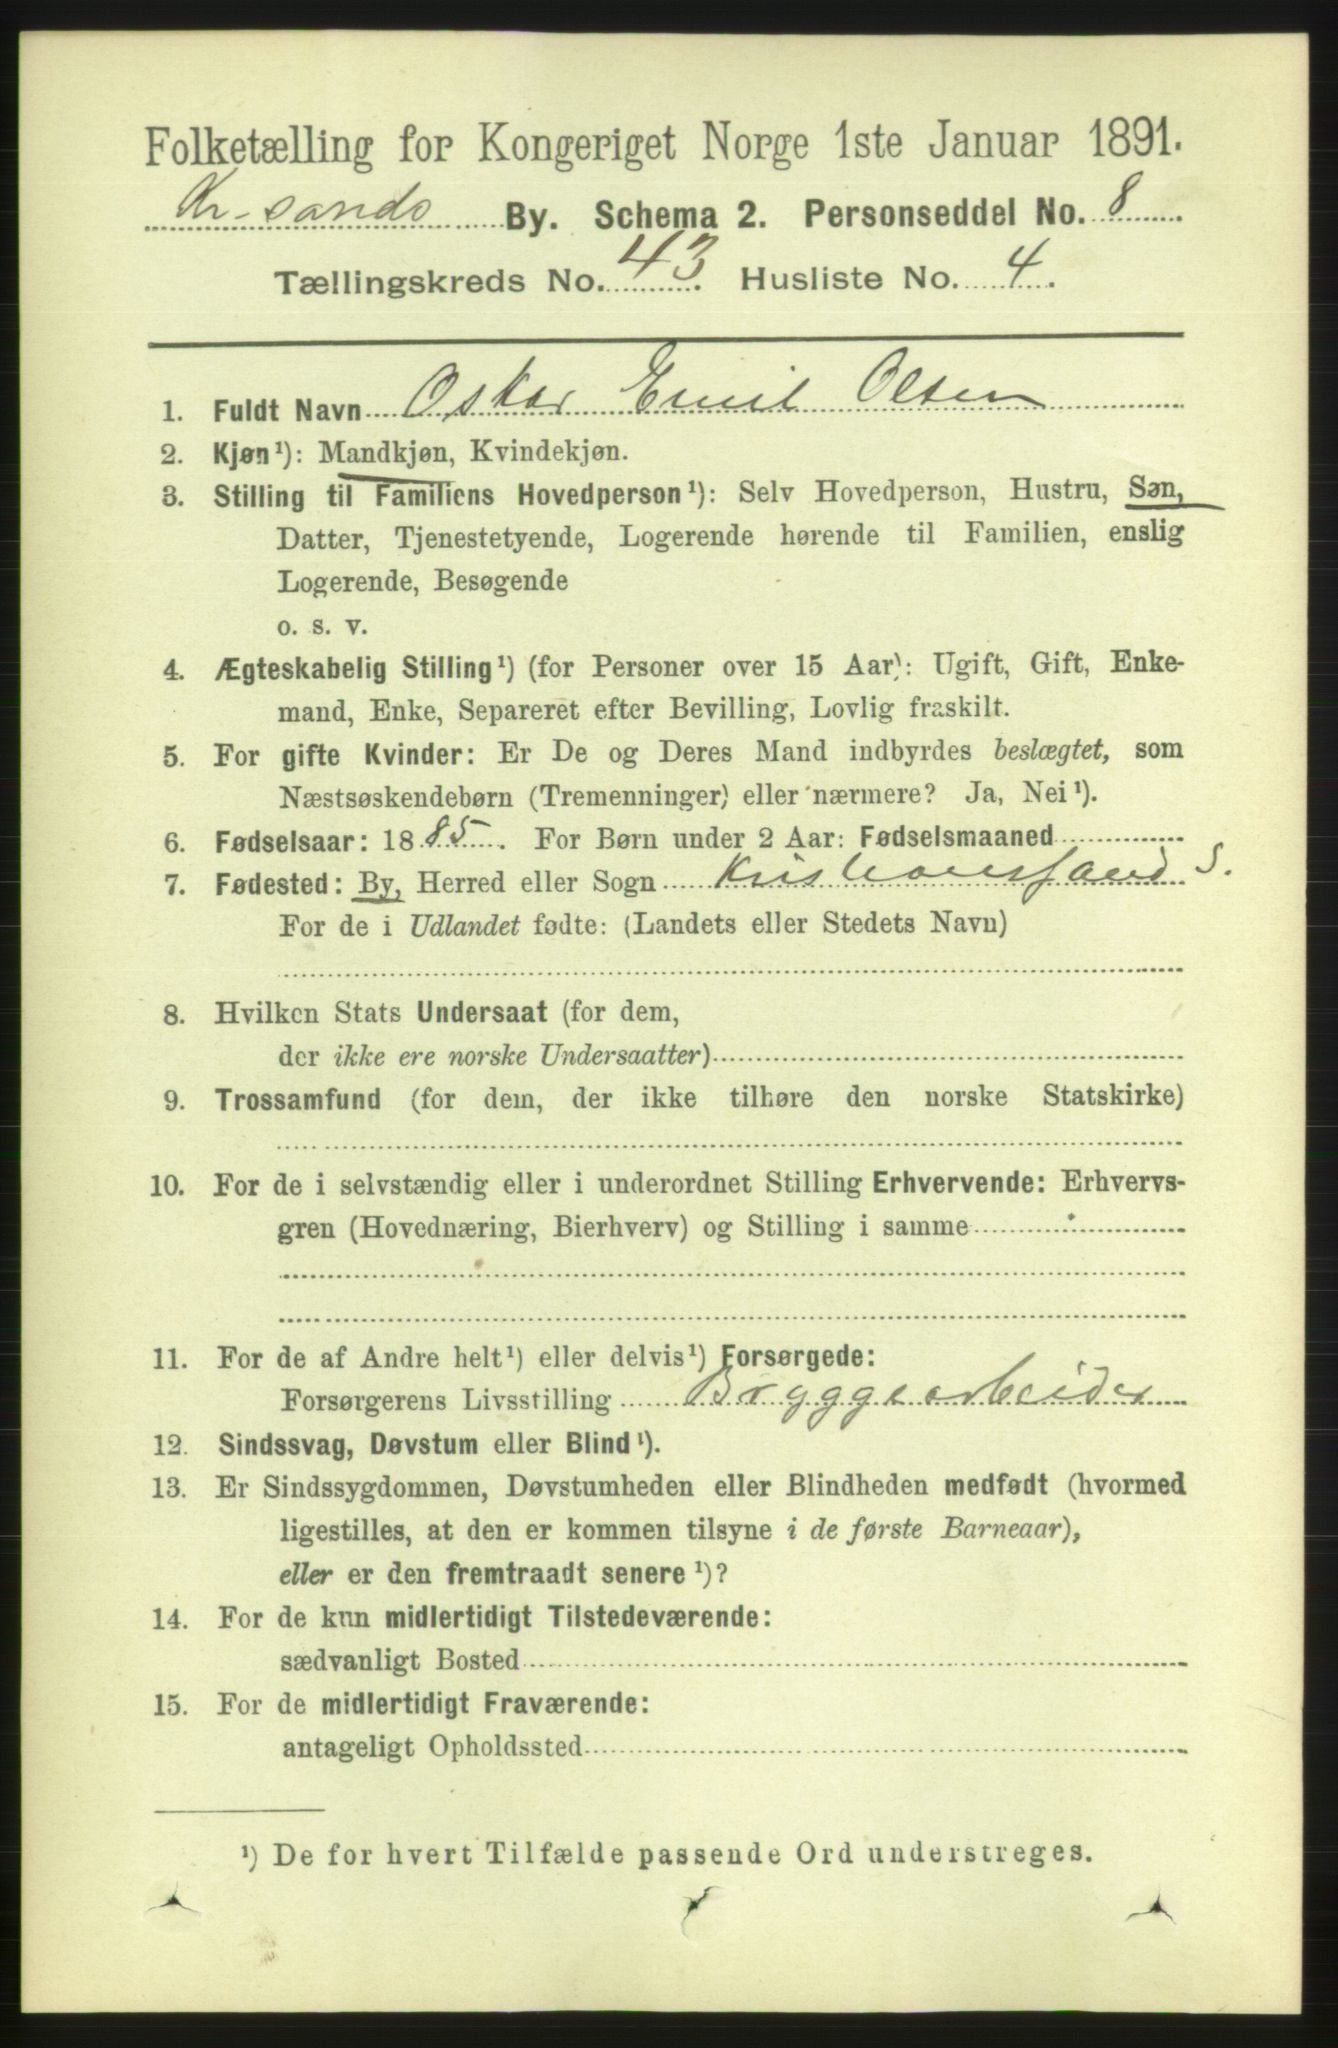 Folketælling for Kongeriget Norge 1ste Januar 1891.
Kr-sands By. Schema 2. Personseddel No. 8
Tællingskreds No. 43. Husliste No. 4.
1. Fuldt Navn Oskar Emil Olsen
2. Kjøn¹): Mandkjøn, Kvindekjøn.
3. Stilling til Familiens Hovedperson¹): Selv Hovedperson, Hustru, Søn,
Datter, Tjenestetyende, Logerende hørende til Familien, enslig
Logerende, Besøgende
o. s. v.
4. Ægteskabelig Stilling¹) (for Personer over 15 Aar): Ugift, Gift, Enke-
mand, Enke, Separeret efter Bevilling, Lovlig fraskilt.
5. For gifte Kvinder: Er De og Deres Mand indbyrdes beslægtet, som
Næstsøskendebørn (Tremenninger) eller nærmere? Ja, Nei¹).
6. Fødselsaar: 1885. For Børn under 2 Aar: Fødselsmaaned
7. Fødested: By, Herred eller Sogn Kristiansand S.
For de i Udlandet fødte: (Landets eller Stedets Navn)
8. Hvilken Stats Undersaat (for dem,
der ikke ere norske Undersaatter)
9. Trossamfund (for dem, der ikke tilhøre den norske Statskirke)
10. For de i selvstændig eller i underordnet Stilling Erhvervende: Erhvervs-
gren (Hovednæring, Bierhverv) og Stilling i samme
11. For de af Andre helt¹) eller delvis¹) Forsørgede:
Forsørgerens Livsstilling Bryggearbeider
12. Sindssvag, Døvstum eller Blind¹).
13. Er Sindssygdommen, Døvstumheden eller Blindheden medfødt (hvormed
ligestilles, at den er kommen tilsyne i de første Barneaar),
eller er den fremtraadt senere¹)?
14. For de kun midlertidigt Tilstedeværende:
sædvanligt Bosted
15. For de midlertidigt Fraværende:
antageligt Opholdssted
¹) De for hvert Tilfælde passende Ord understreges.